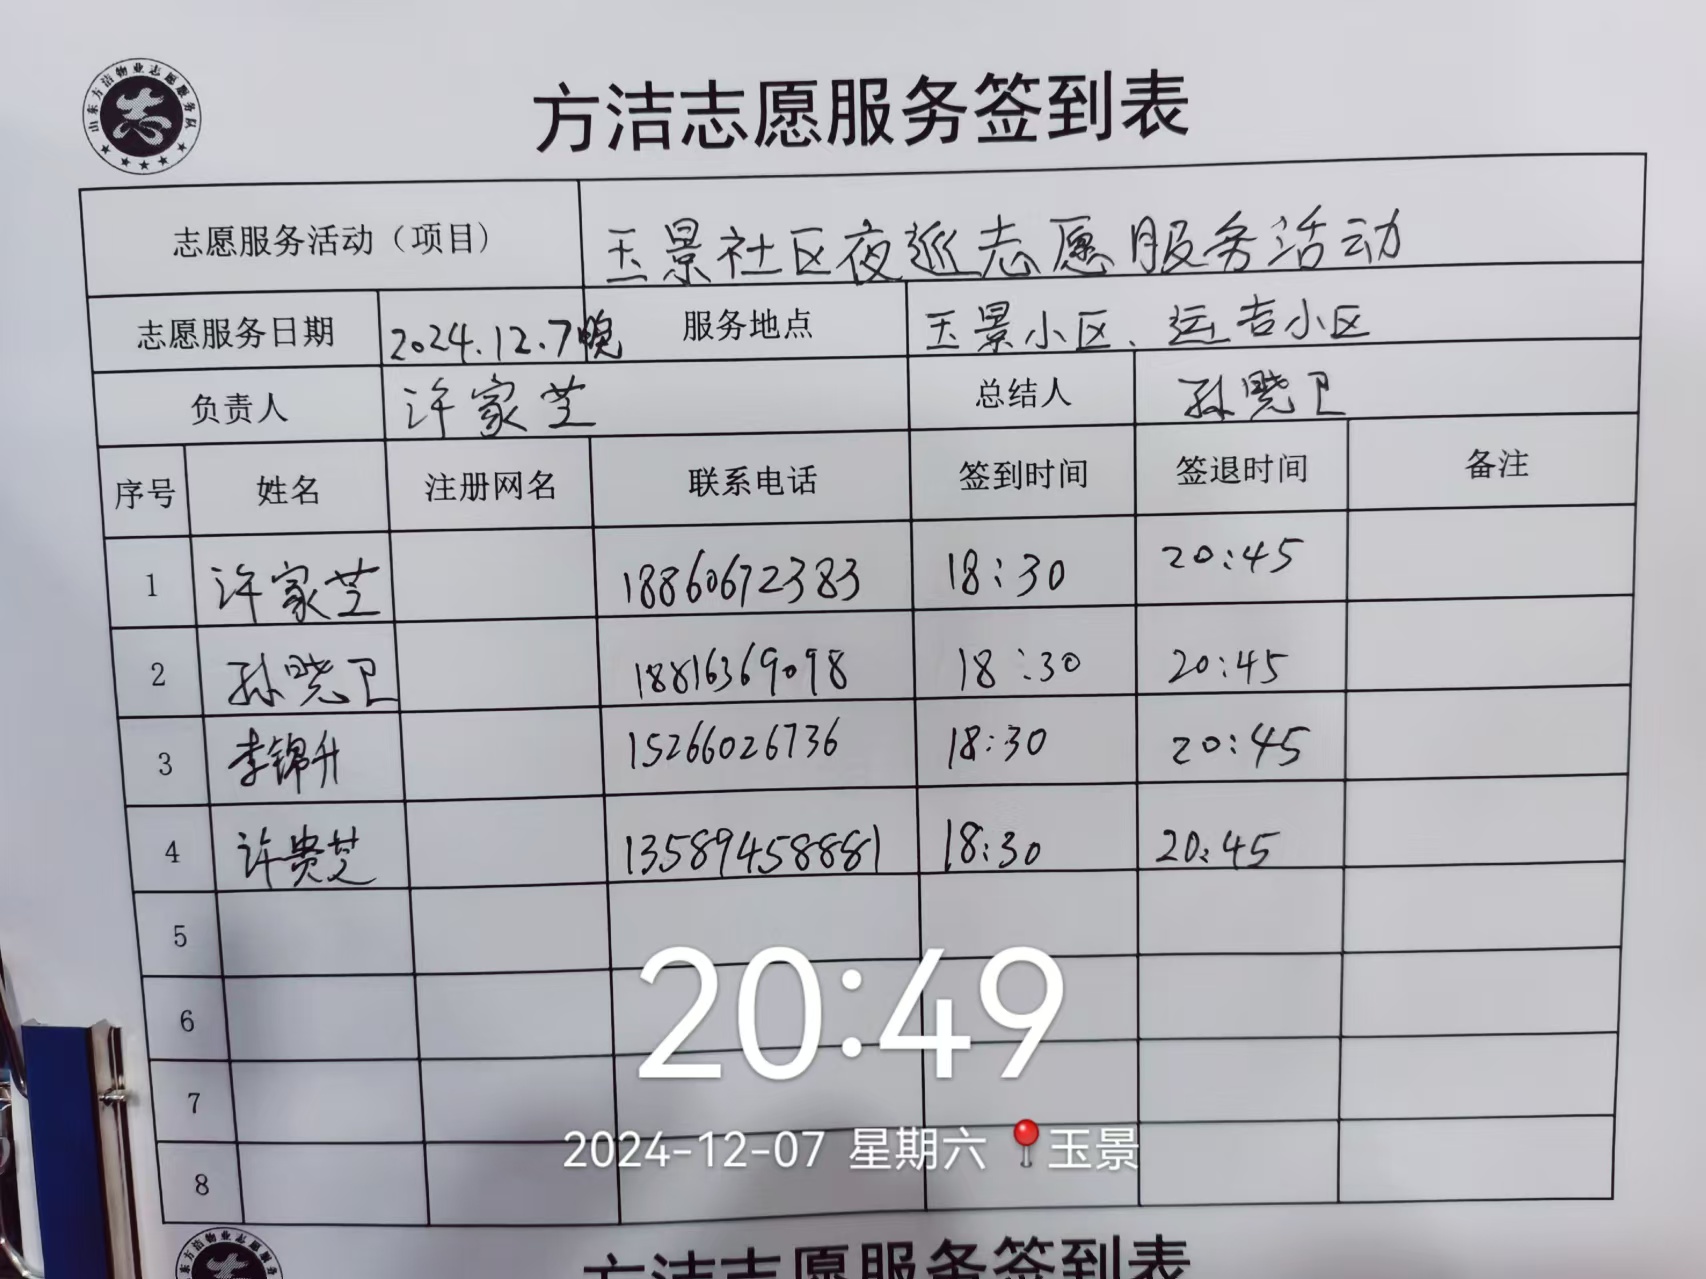 山东方洁物业志愿服务队
志
方洁志愿服务签到表
志愿服务活动（项目） 玉景社区夜巡志愿服务活动
志愿服务日期 2024.12.7晚 服务地点 玉景小区、运吉小区
负责人 许家芝 总结人 孙晓卫
序号 姓名 注册网名 联系电话 签到时间 签退时间 备注
1 许家芝 18860672383 18:30 20:45
2 孙晓卫 18816369098 18:30 20:45
3 李锦升 15266026736 18:30 20:45
4 许贵芝 13589458881 18:30 20:45
5
6
7
8
20:49
2024-12-07 星期六 玉景
方洁志愿服务签到表